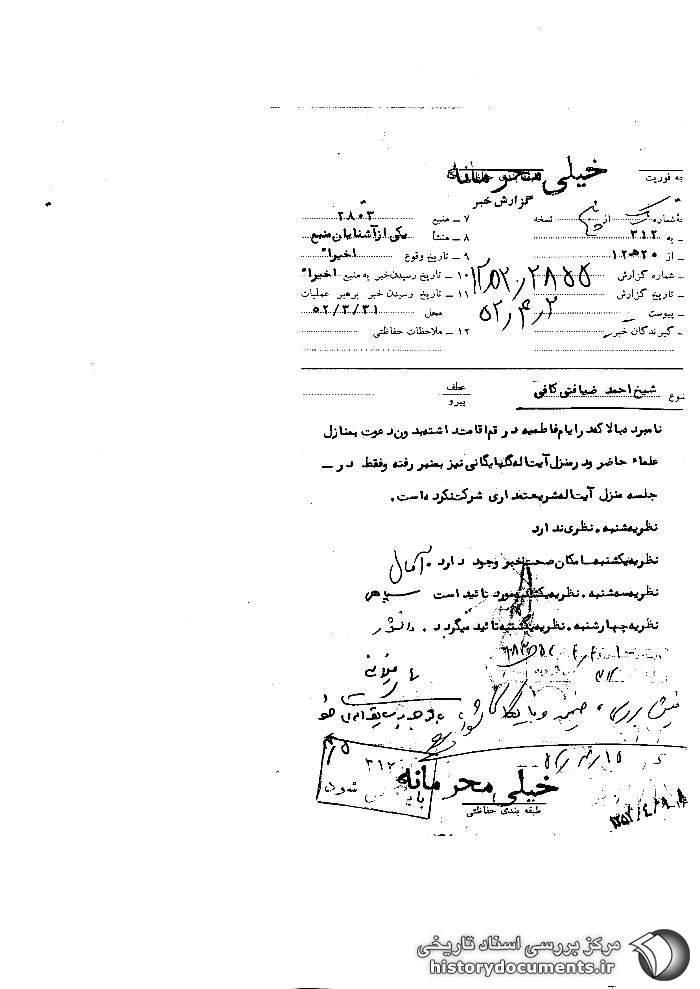 خیلی محرمانه
به فوریت
گزارش خبر
شماره از نسخه
۷ ـ منبع ۲۸۰۳
ـ به ۳۱۲
۸ ـ منشأ یکی از آشنایان منبع
ـ از ۱۲ه۲۰
۹ ـ تاریخ وقوع اخیرا"
ـ شماره گزارش ۲۸۵۵
۱۰ ـ تاریخ رسیدن خبر به منبع اخیرا"
ـ تاریخ گزارش ۵۲٫۴٫۲
۱۱ ـ تاریخ رسیدن خبر برهبر عملیات
ـ پیوست
محل ۵۲/۳/۳۱
ـ گیرندگان خبر
۱۲ ـ ملاحظات حفاظتی
شیخ احمد ضیافتی کافی
عطف
پیرو
نامبرده بالا که در ایام فاطمیه در قم اقامت داشته بدون دعوت بمنازل
علماء حاضر و در منزل آیت اله گلپایگانی نیز بمنبر رفته و فقط در ـ
جلسه منزل آیت اله شریعتمداری شرکت نکرده است.
نظریه شنبه. نظری ندارد
نظریه یکشنبه. امکان صحت خبر وجود دارد. آمال
نظریه سه شنبه. نظریه یکشنبه مورد تائید است
نظریه چهارشنبه. نظریه یکشنبه تائید میگردد.
۳۱۲
شود
خیلی محرمانه
طبقه بندی حفاظتی
۱۳۵۲/۴/۹
مرکز بررسی اسناد تاریخی
historydocuments.ir